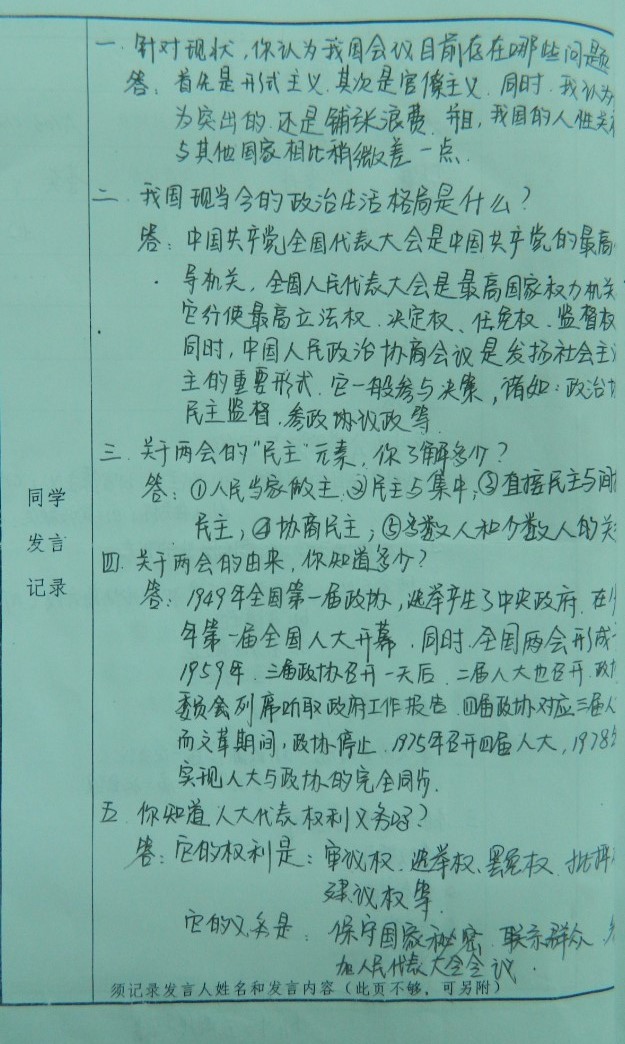 一.针对现状,你认为我国会议目前存在哪些问题
答:首先是形式主义.其次是官僚主义.同时.我认为
为突出的.还是铺张浪费.并且,我国的人性关
与其他国家相比稍微差一点.
二.我国现当今的政治生活格局是什么?
答:中国共产党全国代表大会是中国共产党的最高
导机关,全国人民代表大会是最高国家权力机关
它行使最高立法权、决定权、任免权、监督权
同时,中国人民政治协商会议是发扬社会主
主的重要形式.它一般参与决策,诸如:政治
民主监督.参政协议政等.
三.关于两会的"民主"元素,你了解多少?
答:①人民当家做主.②民主与集中;③直接民主与间
民主;④协商民主;⑤多数人和少数人的关
四.关于两会的由来,你知道多少?
答:1949年全国第一届政协,选举产生了中央政府.在
年第一届全国人大开幕.同时.全国两会形成
1959年.三届政协召开一天后.二届人大也召开.政
委员会列席听取政府工作报告.四届政协对应三届人
而文革期间,政协停止.1975年召开四届人大,1978
实现人大与政协的完全同步.
五.你知道人大代表权利义务吗?
答:它的权利是:审议权.选举权、罢免权.批评
建议权等.
它的义务是:保守国家秘密.联系群众.
加人民代表大会会议.
同学
发言
记录
须记录发言人姓名和发言内容(此页不够,可另附)